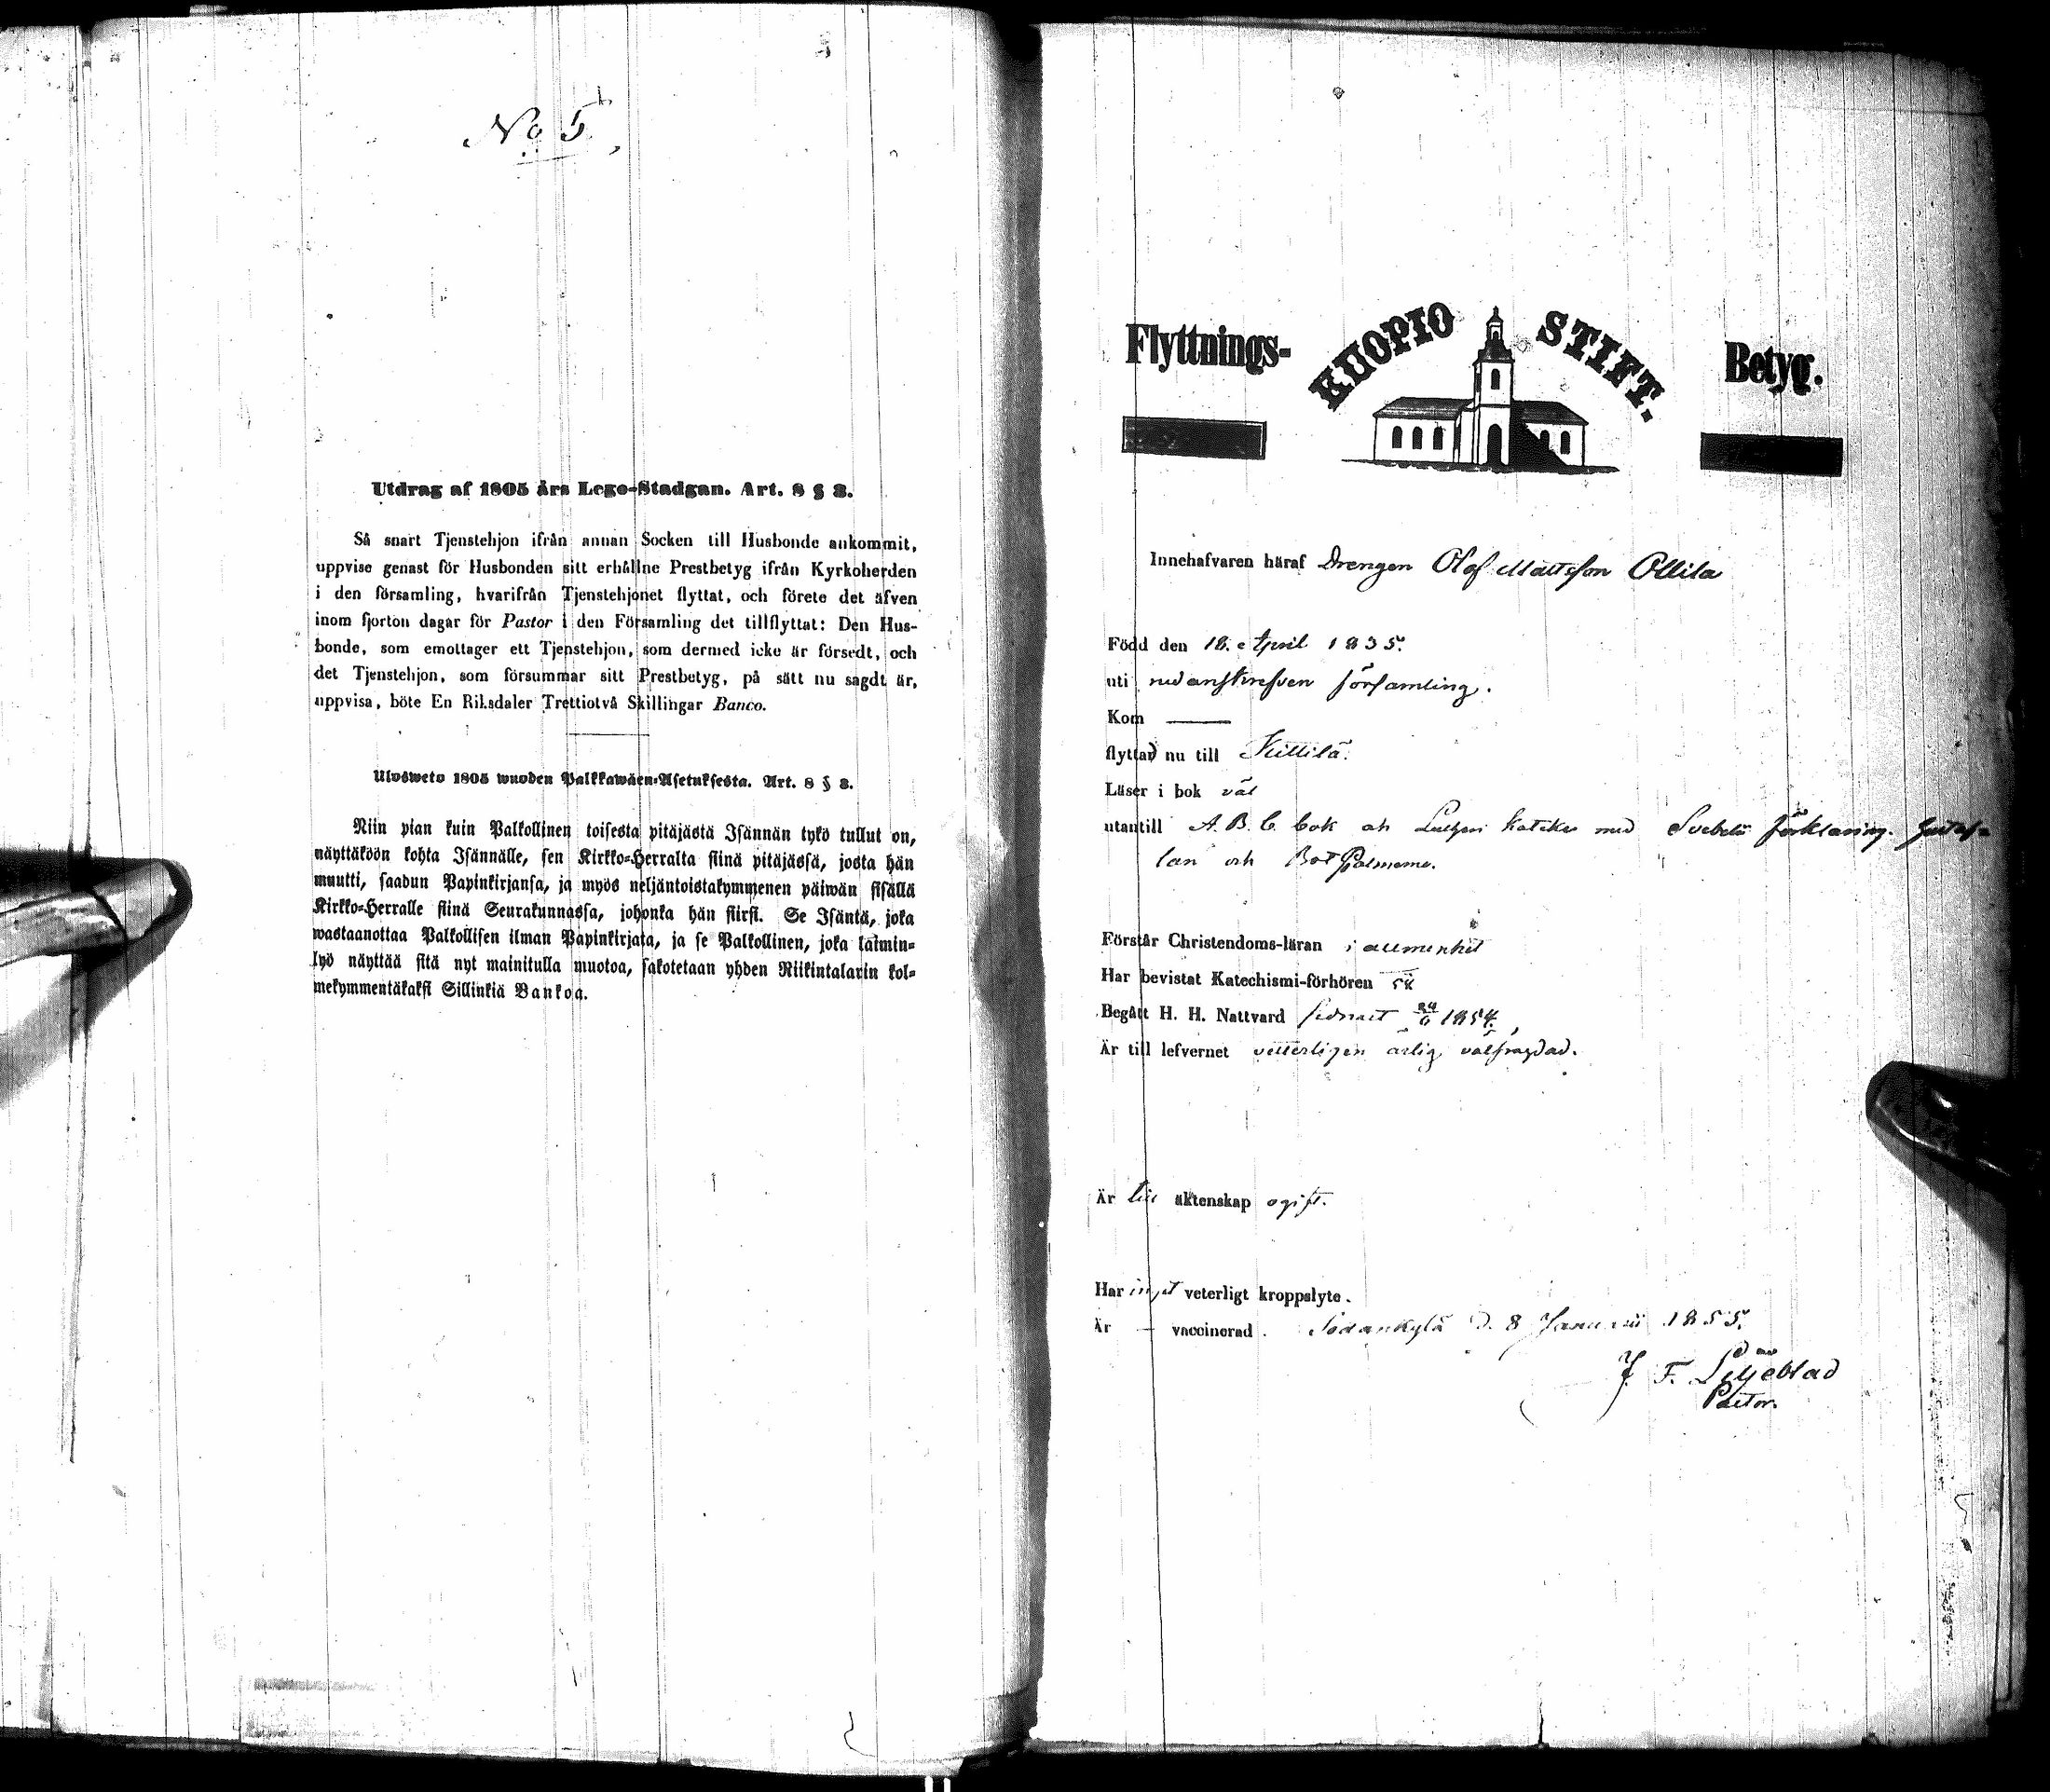 No 5.
Utdrag af 1805 års Lego-Stadgan. Art. 8 § 2.
Så snart Tjenstehjon ifrån annan Socken till Husbonde ankommit,
uppvise genast för Husbonden sitt erhållne Prestbetyg ifrån Kyrkoherden
i den församling, hvarifrån Tjenstehjonet flyttat, och förete det äfven
inom fjorton dagar för Pastor i den Församling det tillflyttat: Den Hus-
bonde, som emottager ett Tjenstehjon, som dermed icke är försedt, och
det Tjenstehjon, som försummar sitt Prestbetyg, på sätt nu sagdt är,
uppvisa, böte En Riksdaler Trettiotvå Skillingar Banco.
Ulosweto 1805 wuoden Palkkawäen-Asetuksesta. Art. 8 § 2.
Niin pian kuin Palkollinen toisesta pitäjästä Isännän tykö tullut on,
näyttäköön kohta Isännälle, sen Kirkko-Herralta siinä pitäjässä, josta hän
muutti, saadun Papinkirjansa, ja myös neljäntoistakymmenen päiwän sisällä
Kirkko-Herralle siinä Seurakunnassa, johonka hän siirsi. Se Isäntä, joka
wastaanottaa Palkollisen ilman Papinkirjata, ja se Palkollinen, joka laimin-
lyö näyttää sitä nyt mainitulla muotoa, sakotetaan yhden Riikintalarin kol-
mekymmentäkaksi Sillinkiä Bankoa.
Flyttnings- KUOPIO STIFT. Betyg.
Innehafvaren häraf Drengen Olof Mattsson Ollila
Född den 18. April 1835.
uti nedanskrefven församling.
Kom
flyttar nu till Kittilä.
Läser i bok väl
utantill A.B.C. bok och Lutheri kateke med Svebelii förklaring.
lan och Bot Psalmerne.
Förstår Christendoms-läran i allmenhet
Har bevistat Katechismi-förhören 54
Begått H. H. Nattvard sednast 24/6 1854.
Är till lefvernet vetterligen ärlig välfrägdad.
Är till äktenskap ogift.
Har intet veterligt kroppslyte.
Är vaccinerad. Sodankylä d. 8 Januarii 1855.
J. F. Liljeblad
Pastor.